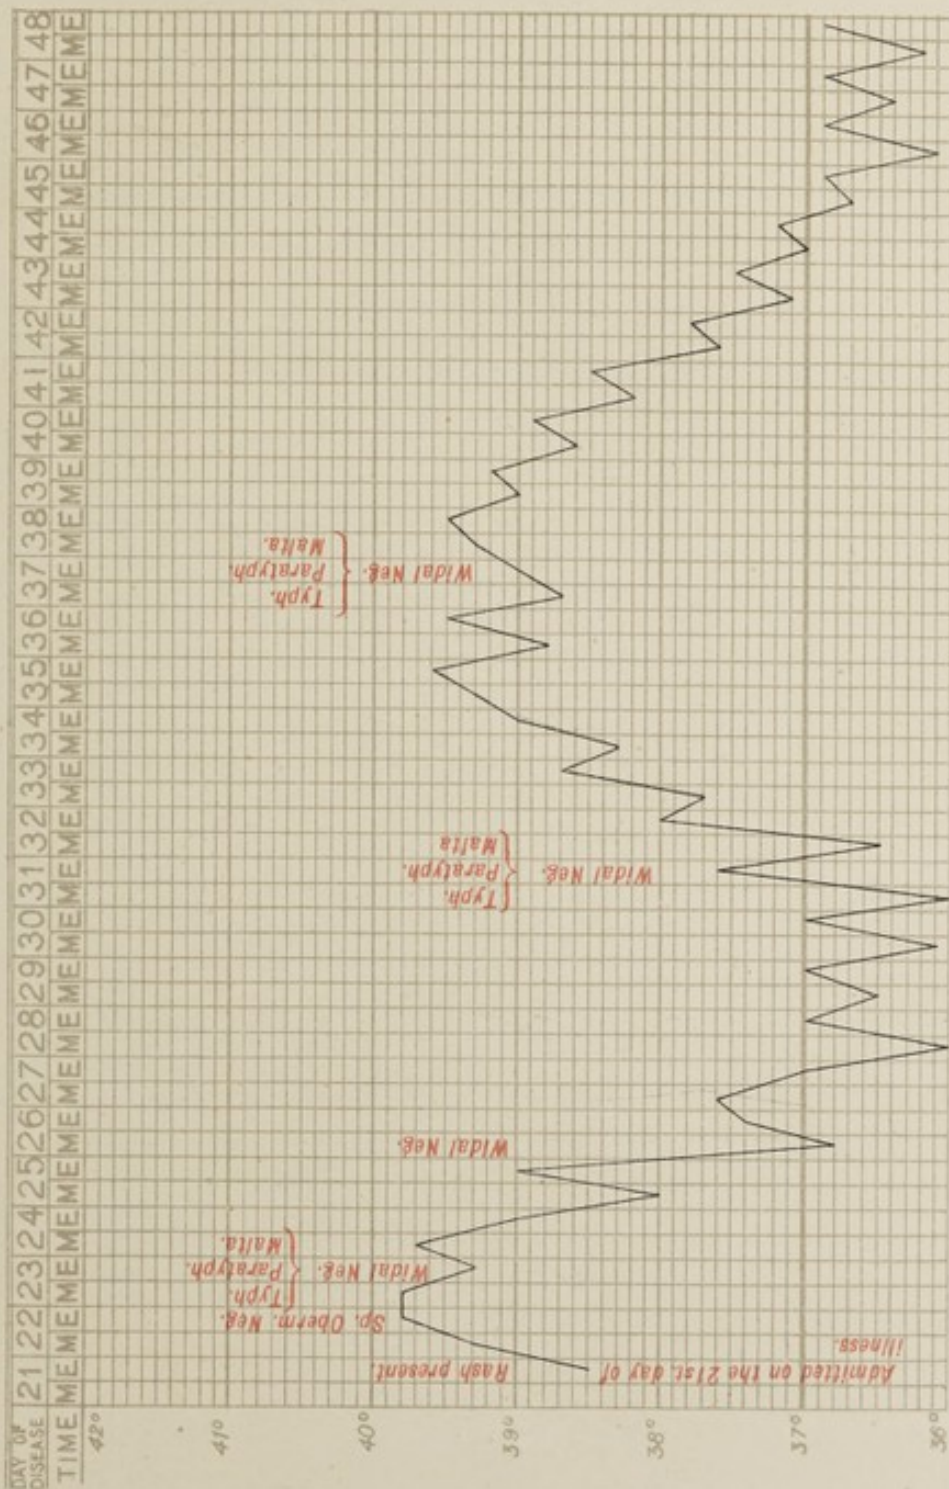 DAY OF DISEASE 21 22 23 24 25 26 27 28 29 30 31 32 33 34 35 36 37 38 39 40 41 42 43 44 45 46 47 48
TIME M E M E M E M E M E M E M E M E M E M E M E M E M E M E M E M E M E M E M E M E M E M E M E M E M E M E M E M E
42°
41°
40°
39°
38°
37°
36°
Admitted on the 21st. day of
illness.
Rash present.
Sp. Oberm. Neg.
Widal Neg. { Typh.
Paratyph.
Malta.
Widal Neg.
Widal Neg. { Typh.
Paratyph.
Malta
Widal Neg. { Typh.
Paratyph.
Malta.